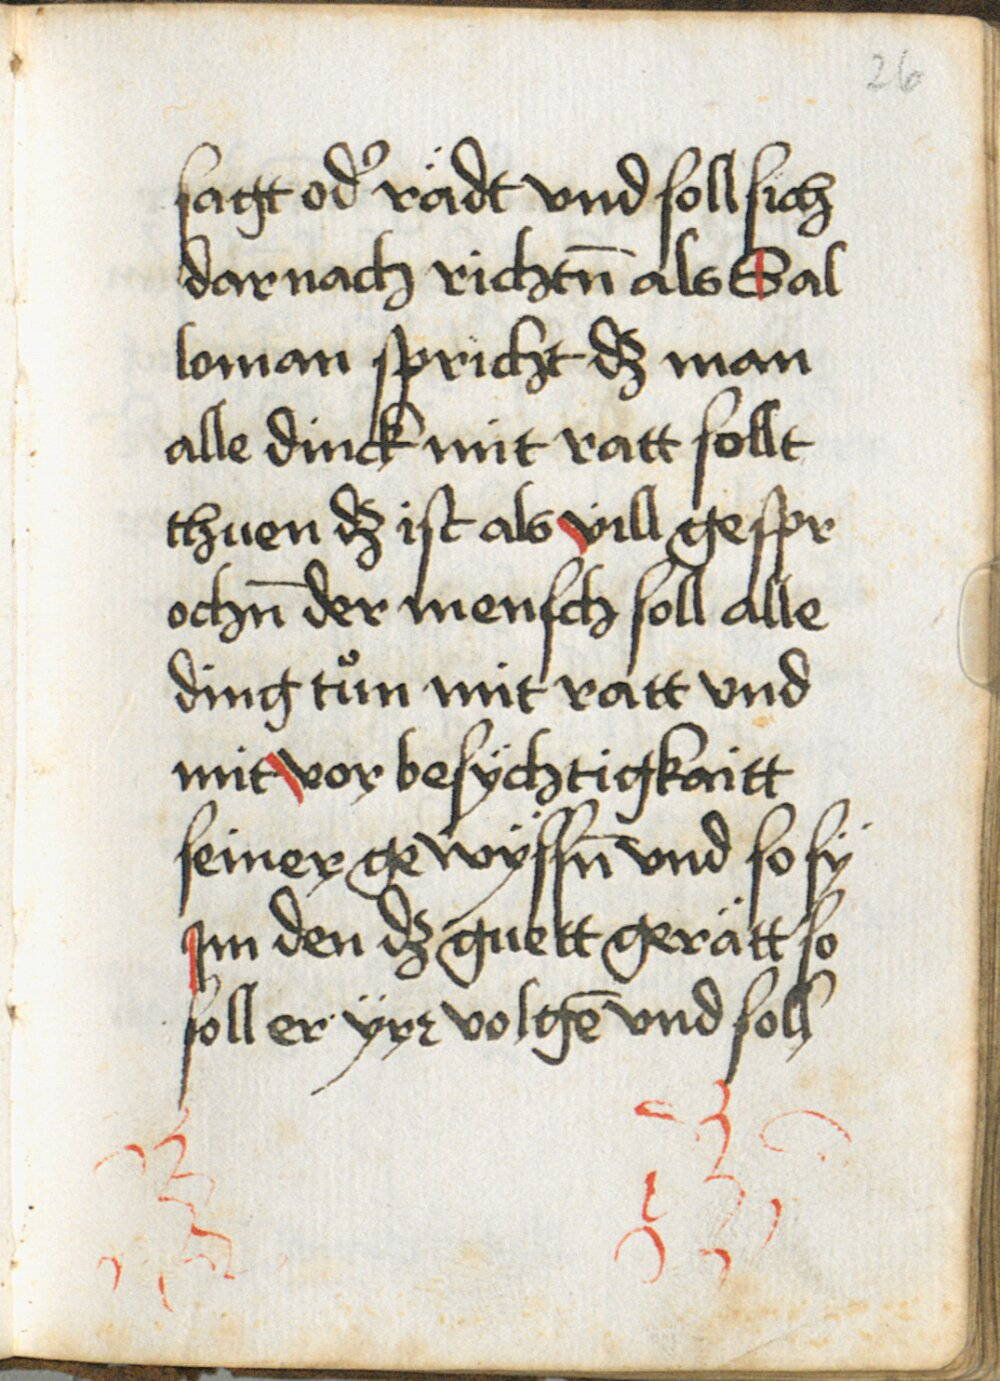 26
sagt od᷒ rädt vnd soll sich
darnach richtn̄ als Sal
loman spricht dʒ man
alle dinck mit ratt sollt
thuen dʒ ist als vill gespr
ochn̄ der mensch soll alle
ding tůn mit ratt vnd
mit vor besÿchtigkaitt
seiner gewÿssn̄ vnd so sÿ
jm den dʒ guett gerätt so
soll er ÿrꝛ volgē vnd soll